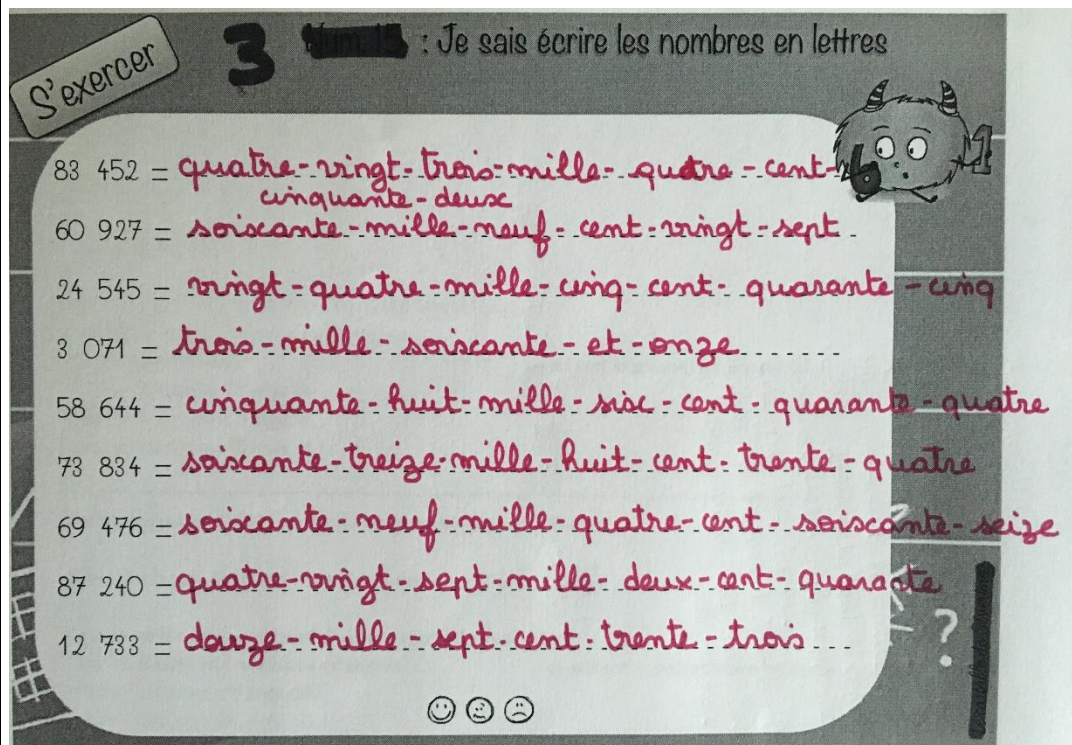 S'exercer
3 Num 15 : Je sais écrire les nombres en lettres
83 452 = quatre-vingt-trois-mille-quatre-cent-
cinquante-deux
60 927 = soixante-mille-neuf-cent-vingt-sept
24 545 = vingt-quatre-mille-cinq-cent-quarante-cinq
3 071 = trois-mille-soixante-et-onze
58 644 = cinquante-huit-mille-six-cent-quarante-quatre
73 834 = soixante-treize-mille-huit-cent-trente-quatre
69 476 = soixante-neuf-mille-quatre-cent-soixante-seize
87 240 = quatre-vingt-sept-mille-deux-cent-quarante
12 733 = douze-mille-sept-cent-trente-trois
?